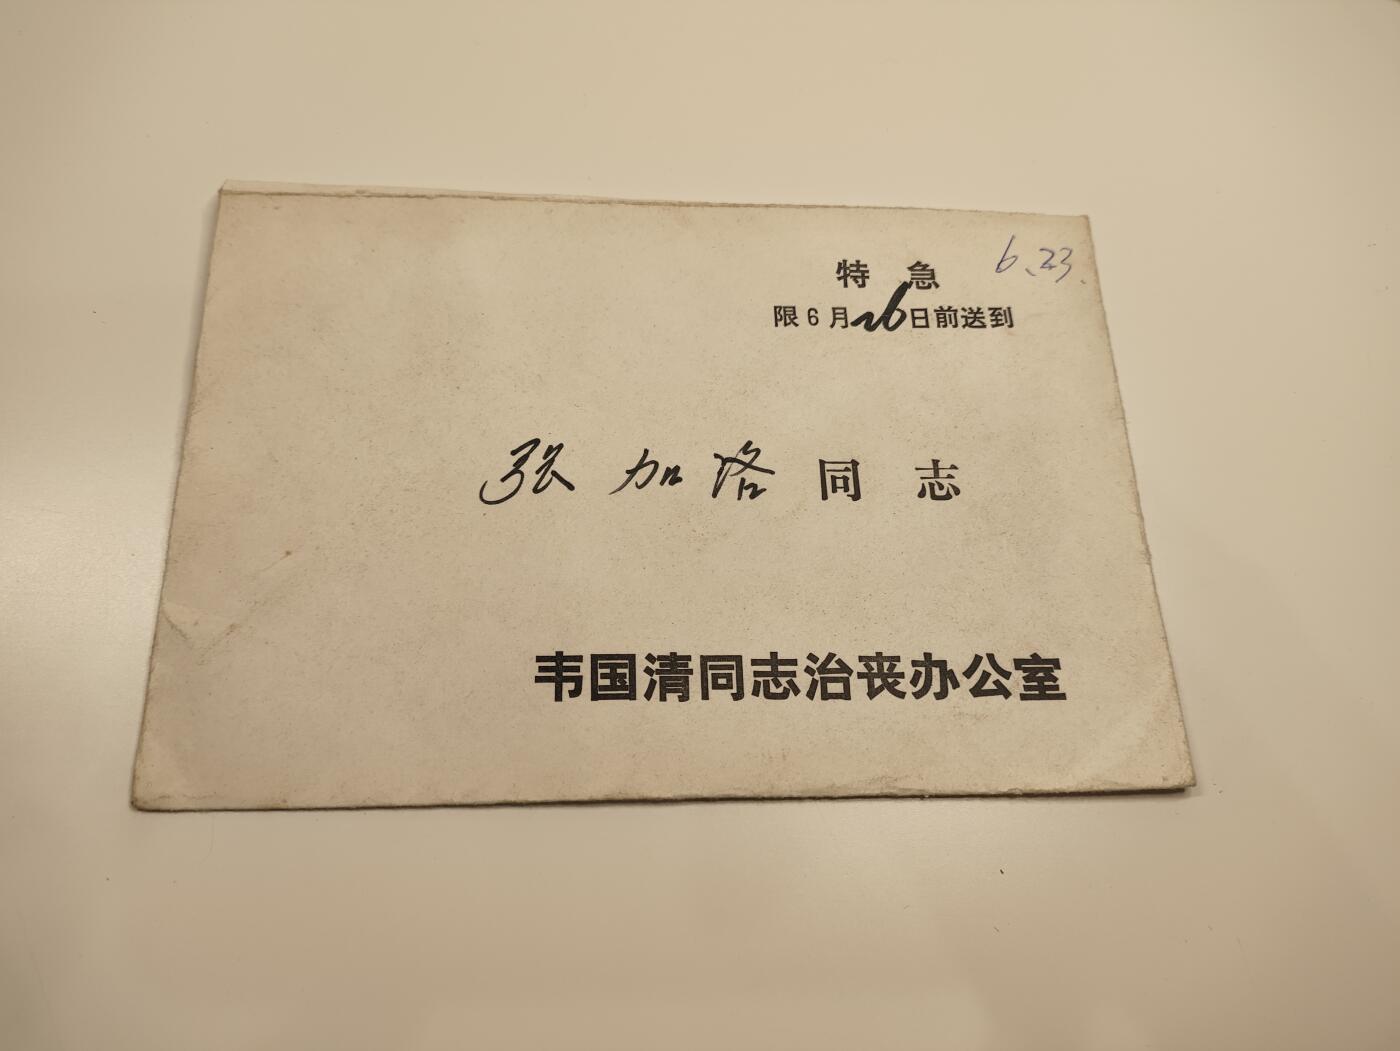 6.23
特急
限6月26日前送到
张加洛同志
韦国清同志治丧办公室